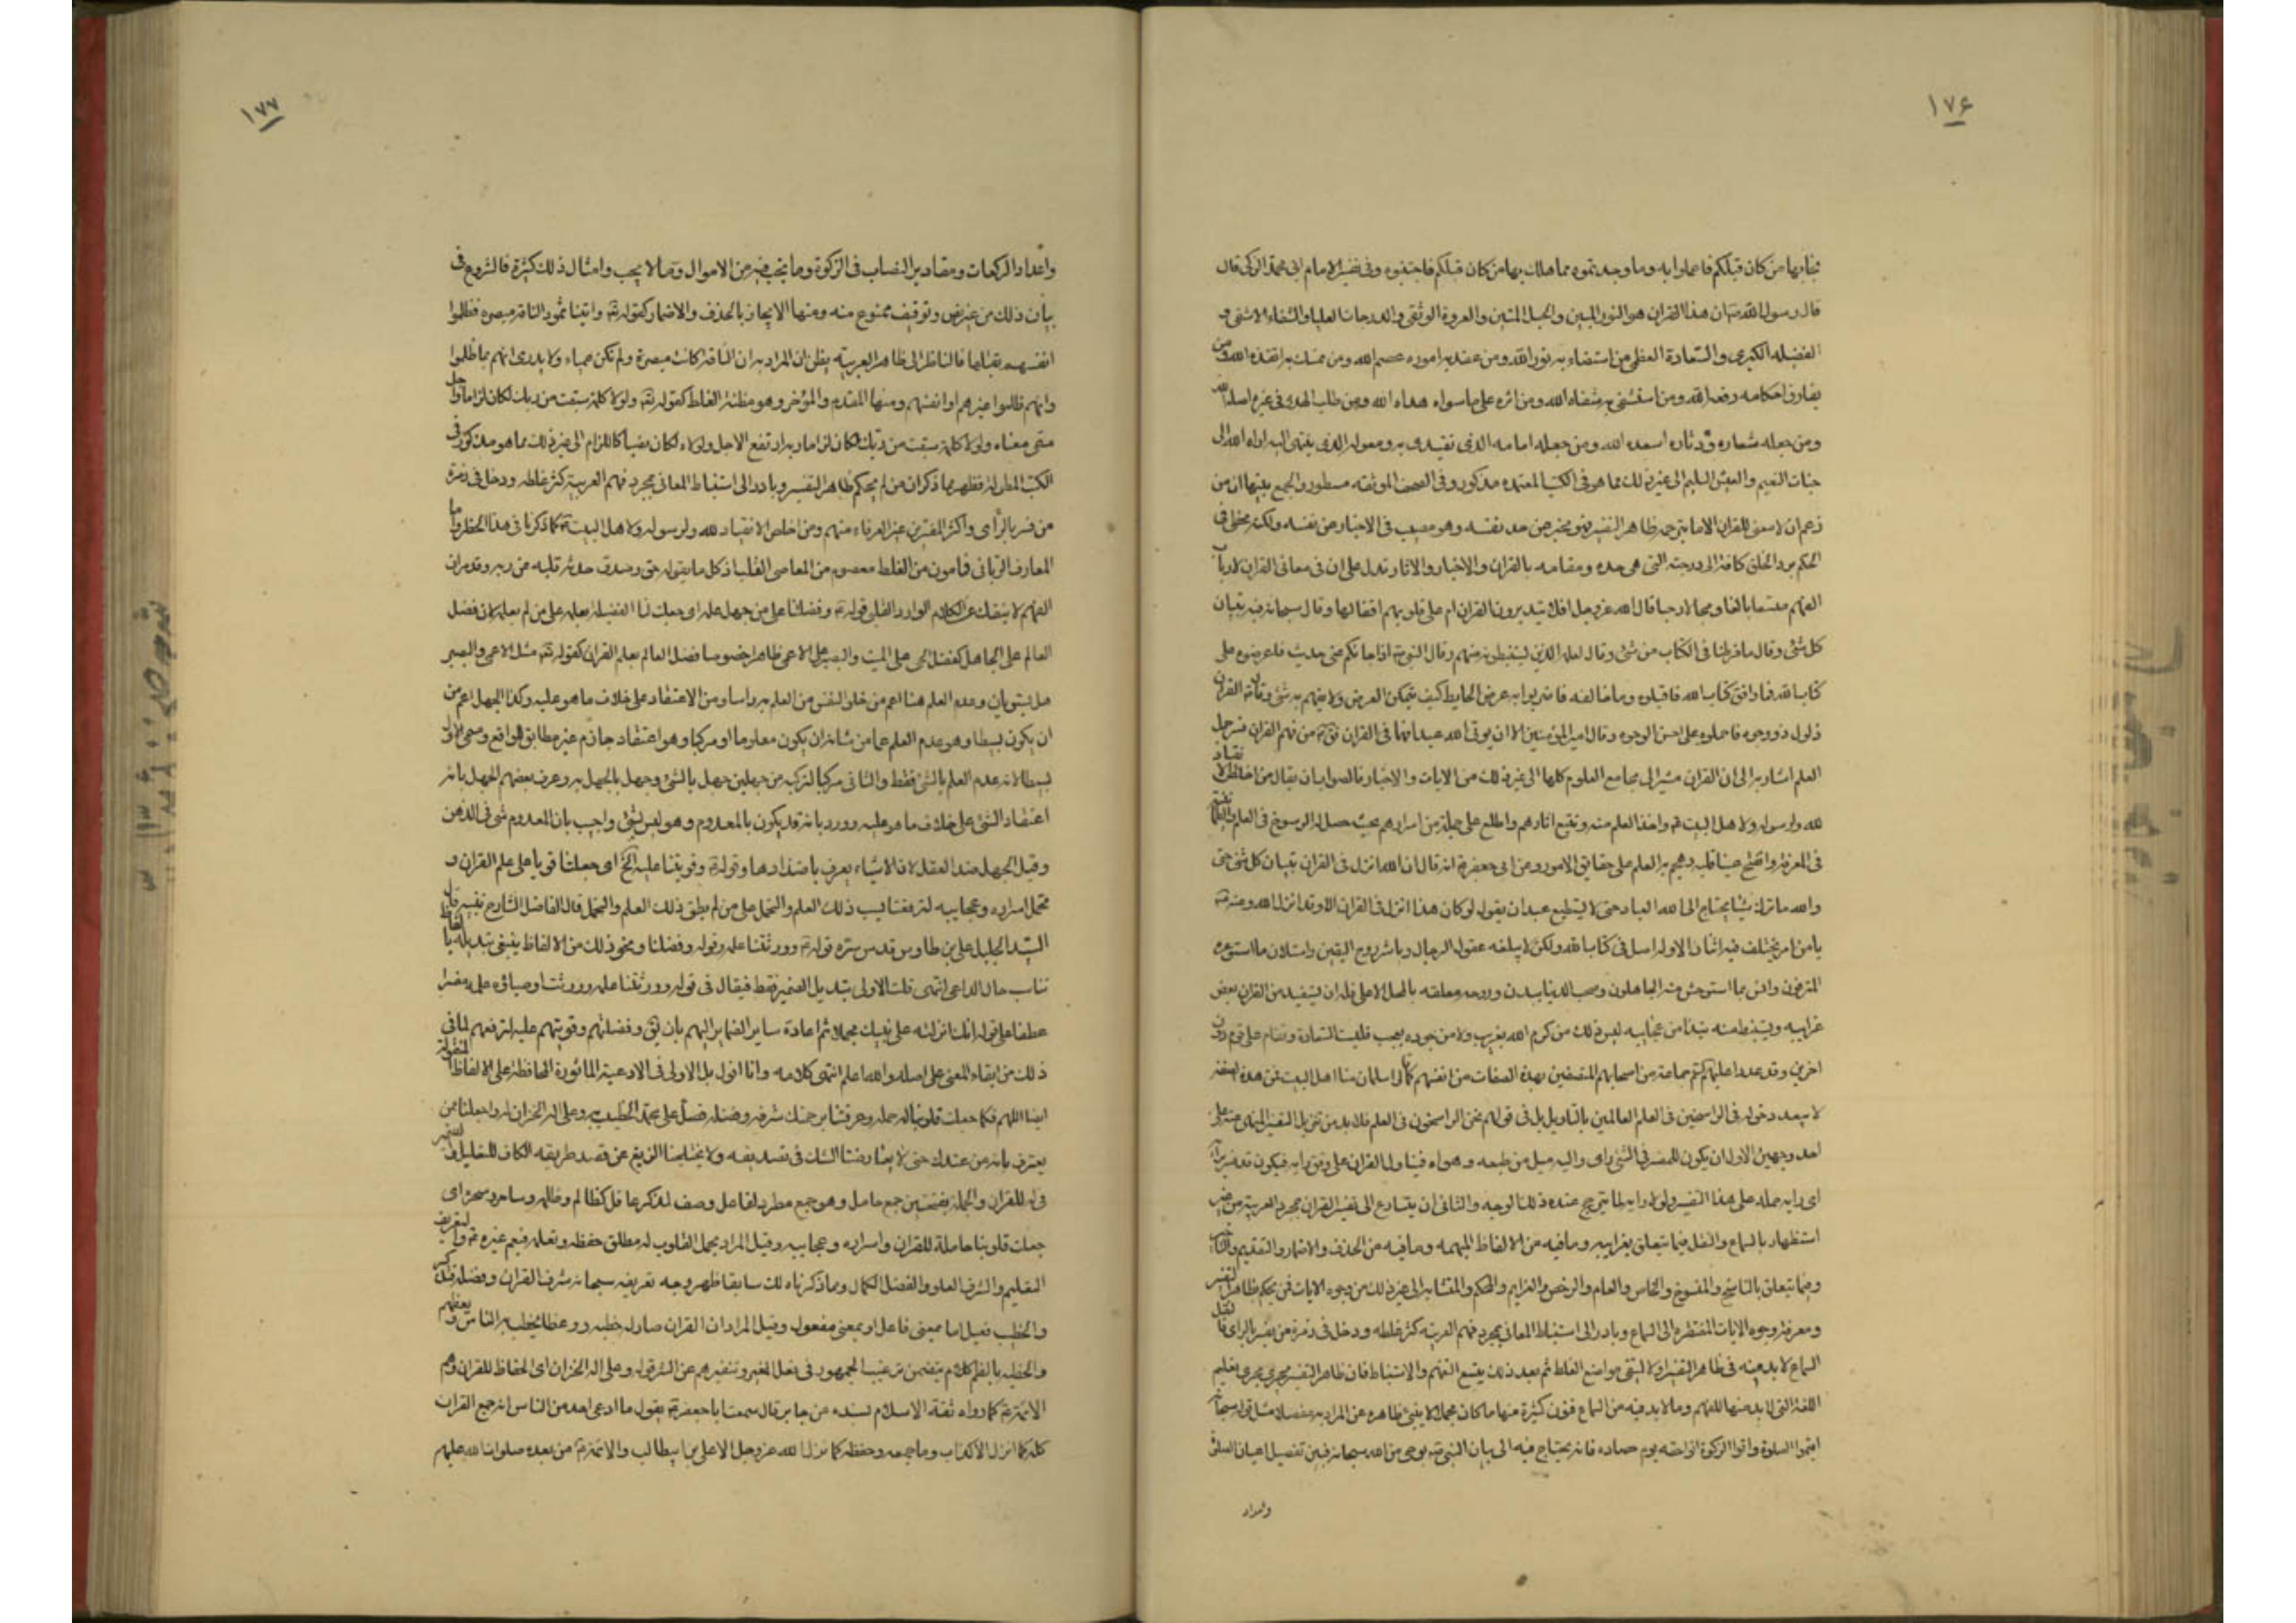 ١٧۶
نجا بها من كان قبلكم فاعملوا به وما وجدتموه مما هلك بها من كان قبلكم فاجتنبوه وفى تفسير الامام ابى محمد الزكى قال
قال رسول الله ص ان هذا القران هو النور المبين والحبل المتين والعروة الوثقى والدرجات العليا والشفاء الاشفى و
الفضيله الكبرى والسعادة العظمى من استضاء به نوره الله ومن عقد به اموره عصمه الله ومن تمسك به انقذه الله ومن
يفارق احكامه رفعه الله ومن استشفى به شفاه الله ومن اثره على ما سواه هداه الله ومن طلب الهدى فى غيره اضله الله
ومن جعله شعاره ودثاره اسعده الله ومن جعله امامه الذى يقتدى به ومعوله الذى ينتهى اليه اداه الله الى
جنات النعيم والعيش السليم الى غير ذلك مما هو فى الكتب المعتمده مذكور وفى الصحف الموثقه مسطور والجمع بينها ان من
زعم ان لا معنى للقران الا ما يترجمه ظاهر التفسير فهو مخبر عن حد نفسه وهو مصيب فى الاخبار عن نفسه ولكنه مخطى فى
الحكم برد الخلق كافة الى درجته التى هى حده ومقامه بالقران والاخبار والاثار تدل على ان فى معانى القران لارباب
الفهم متسعا بالغا ومجالا رحبا قال الله عز وجل افلا يتدبرون القران ام على قلوب اقفالها وقال سبحانه فيه تبيان
كل شئ وقال ما فرطنا فى الكتاب من شئ وقال لعلمه الذين يستنبطونه منهم وقال النبى ص اذا جائكم عنى حديث فاعرضوه على
كتاب الله فما وافق كتاب الله فاقبلوه وما خالفه فاضربوا به عرض الحايط كيف يمكن العرض ولا يفهم به شئ وقال ص القران
ذلول ذو وجوه فاحملوه على احسن الوجوه وقال امير المؤمنين الا ان يوتى الله عبدا فهما فى القران من فهم القران فسر جمل
العلم اشار به الى ان القران مشير الى مجامع العلوم كلها الى غير ذلك من الايات والاخبار فالصواب ان يقال من اخلص الانقياد
لله ولرسوله ولاهل البيت واخذ العلم منهم وتتبع اثارهم واطلع على جملة من اسرارهم بحيث حصل له الرسوخ فى العلم والطمأنينه
فى المعرفة وانفتح عينا قلبه وهجم به العلم على حقايق الامور وعن ابى جعفر انه قال ان الله انزل فى القران تبيان كل شئ حتى
والله ما ترك شيئا يحتاج الى الله العباد حتى لا يستطيع عبد ان يقول لو كان هذا انزل فى القران الا وقد انزل الله ومنه
ما من امر يختلف فيه اثنان الا وله اصل فى كتاب الله ولكن لا يبلغه عقول الرجال وباشر روح اليقين واستلان ما استوعره
المترفون وانس بما استوحش منه الجاهلون وصحب الدنيا ببدن وروحه معلقه بالمحل الاعلى فله ان يستفيد من القران بعض
غرايبه ويستنبط منه نبذا من عجايبه ليس ذلك من كرم الله بغريب ولا من جوده بعجيب فليست السعادة وقفا على قوم دون
اخرين وقد عدوا عليهم جماعة من اصحابهم المتصفين بهذه الصفات من انفسهم كما قالوا سلمان منا اهل البيت فمن هذه صفته
لا يبعد دخوله فى الراسخين فى العلم العالمين بالتاويل بل فى قولهم نحن الراسخون فى العلم فلا بد من تنزيل التفسير المنهى عنه على
احد وجهين الاول ان يكون للمفسر فى الشئ راى واليه ميل من طبعه وهواه فيتاول القران على وفق رايه فيكون قد فسر برأيه
اى رايه حمله على هذا التفسير ولولا رايه لما يترجح عنده ذلك الوجه والثانى ان يتسارع الى تفسير القران بمجرد العربيه من غير
استظهار بالسماع والنقل فيما يتعلق بغرايبه وما فيه من الالفاظ المبهمه وما فيه من الحذف والاضمار والتقديم والتاخير
وفيما يتعلق بالناسخ والمنسوخ والخاص والعام والرخص والعزايم والمحكم والمتشابه الى غير ذلك من وجوه الايات فمن لم يحكم ظاهر التفسير
ومعرفة وجوه الايات المفتقره الى السماع وبادر الى استنباط المعانى بمجرد فهم العربيه كثر غلطه ودخل فى زمرة من يفسر بالراى فالنقل
السماع لا بد منه فى ظاهر التفسير اولا ليتقى مواضع الغلط ثم بعد ذلك يتسع التفهم والاستنباط فان ظاهر التفسير يجرى مجرى تعليم
اللغة التى لا بد منها للفهم وما لا بد فيه من السماع فنون كثيرة منها ما كان مجملا لا ينبئ ظاهره عن المراد به مفصلا مثل قوله سبحانه
اقيموا الصلوة واتوا الزكوة اتوا حقه يوم حصاده فانه يحتاج فيه الى بيان النبى ص بوحى من الله سبحانه فيبين تفصيل اعيان الصلوة
واعداد
١٧٧
واعداد الركعات ومقادير النصاب فى الزكوة وما تجب فيه من الاموال وما لا يجب وامثال ذلك كثيرة فالشروع فى
بيان ذلك من غير نص وتوقيف ممنوع منه ومنها الايجاز بالحذف والاضمار كقوله تع واتينا ثمود الناقة مبصره فظلموا
انفسهم بقتلها فالناظر الى ظاهر العربيه يظن ان المراد به ان الناقة كانت مبصرة ولم تكن عمياء ولا يدرى انهم بما ظلموا
وانهم ظلموا غيرهم او انفسهم ومنها المقدم والمؤخر وهو مظنة الغلط كقوله تع ولولا كلمة سبقت من ربك لكان لزاما واجل
مسمى معناه ولولا كلمة سبقت من ربك لكان لزاما وبه ارتفع الاجل ولولاه لكان نصبا كاللزام الى غير ذلك مما هو مذكور فى
الكتب المطوله فظهر مما ذكر ان من لم يحكم ظاهر التفسير وبادر الى استنباط المعانى بمجرد فهم العربيه كثر غلطه ودخل فى زمرة
من فسر بالرأى واكثر المفسرين غير العرفاء منهم ومن اخلص الانقياد لله ولرسوله ولاهل البيت كما ذكرنا فى هذا الحظر واما
المعارف الربانى فمأمون من الغلط معصوم من المعاصى القلب اذ كل ما يقوله حق وصدق حدثه قلبه عن ربه وقد مر ان
الفهم لا ينفك عن الكلام الوارد القلبى قوله وفضلتنا على من جهل علمه اى جعلت لنا الفضيلة بعلمه على من لم يعلمه لان فضل
العالم على الجاهل كفضل الحى على الميت والبصير على الاعمى ظاهر خصوصا فضل العالم بعلم القران كقوله تع مثل الاعمى والبصير
هل يستويان وعدم العلم هنا اعم من خلو النفس من العلم به راسا ومن الاعتقاد على خلاف ما هو عليه وكذا الجهل اعم من
ان يكون بسيطا وهو عدم العلم عما من شانه ان يكون معلوما او مركبا وهو اعتقاد جازم غير مطابق للواقع وسمى الاول
بسيطا لانه عدم العلم بالشئ فقط والثانى مركبا لتركبه من جهلين جهل بالشئ وجهل بالجهل به وعرف بعضهم الجهل بانه
اعتقاد الشئ على خلاف ما هو عليه ورد بانه قد يكون بالمعدوم وهو ليس بشئ واجيب بان المعدوم شئ فى الذهن
وقيل الجهل ضد العقل لان الاشياء يعرف باضدادها وقوله وقويتنا عليه الخ اى جعلتنا قويا على علم القران و
تحمل اسراره وعجايبه لترفعنا بسبب ذلك العلم والتحمل على من لم يطق ذلك العلم والتحمل قال الفاضل الشارح
السيد الجليل على بن طاوس قدس سره قوله وورثتنا علمه وقوله وفضلتنا ونحو ذلك من الالفاظ ينبغى تبديله بالفاظ
تناسب حال الداعى انتهى قلت الاولى تبديل الضمير فقط فيقال فى قوله وورثتنا علمه وورثت اوصيائه علمه مفسرا
عطفا على قوله انك انزلته على نبيك مجملا ثم اعادة ساير الضماير اليهم بان يق وفضلتهم وقويتهم عليه لترفعهم لما فى
ذلك من ابقاء المعنى على اصله والله اعلم انتهى كلامه وانا اقول بل الاولى فى الادعية الماثورة المحافظة على الالفاظ المنقولة
ايضا اللهم فكما جعلت قلوبنا له حملة وعرفتنا برحمتك شرفه وفضله فصل على محمد الخطيب به وعلى اله الخزان له واجعلنا ممن
يعترف بانه من عندك حتى لا يعارضنا الشك فى تصديقه ولا يختلجنا الزيغ عن قصد طريقه الكاف للتعليل
فى له للقران والحملة بفتحتين جمع حامل وهو جمع مطرد لفاعل وصف لمذكر عاقل كظالم وظلمه وساحر وسحرة اى
جعلت قلوبنا حاملة للقران واسراره وعجايبه وقيل المراد بحمل القلوب له مطلق حفظه وتعلمه فيعم غيره
التعليم والشرف العلو والفضل الكمال ومما ذكرناه لك سابقا ظهر وجه تعريفه سبحانه شرف القران وفضله
والخطيب فعيل اما بمعنى فاعل او بمعنى مفعول وقيل المراد ان القران صار له خطبه ووعظا يخطب به الناس ويعظهم
والخطبه بالضم كلام يتضمن ترغيب الجمهور فى فعل الخير وتنفيرهم عن الشر قوله وعلى اله الخزان اى الحفاظ للقران وهم
الائمة كما رواه ثقة الاسلام بسنده عن جابر قال سمعت ابا جعفر يقول ما ادعى احد من الناس انه جمع القران
كله كما انزل الا كذاب وما جمعه وحفظه كما نزل الله عز وجل الا على بن ابيطالب والائمة من بعده صلوات الله عليهم